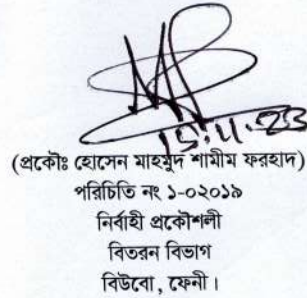 15.11.23
(প্রকৌঃ হোসেন মাহমুদ শামীম ফরহাদ)
পরিচিতি নং ১-০২০১৯
নির্বাহী প্রকৌশলী
বিতরন বিভাগ
বিউবো, ফেনী।